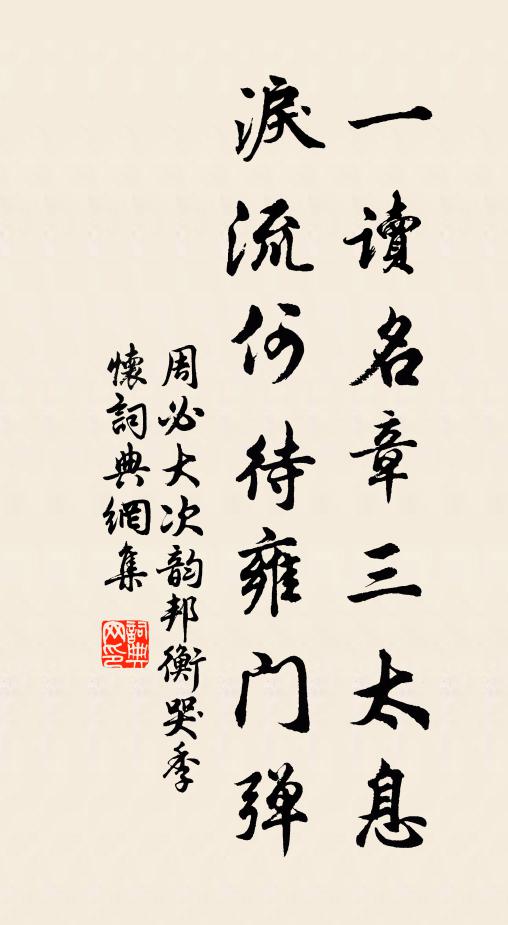 一讀名章三太息
淚流何待雍门弹
周必大次韵邦衡哭季
懷詞典網集
詞典网印